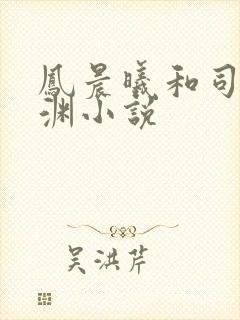 鳳晨曦和司
渊小説
吴洪芹